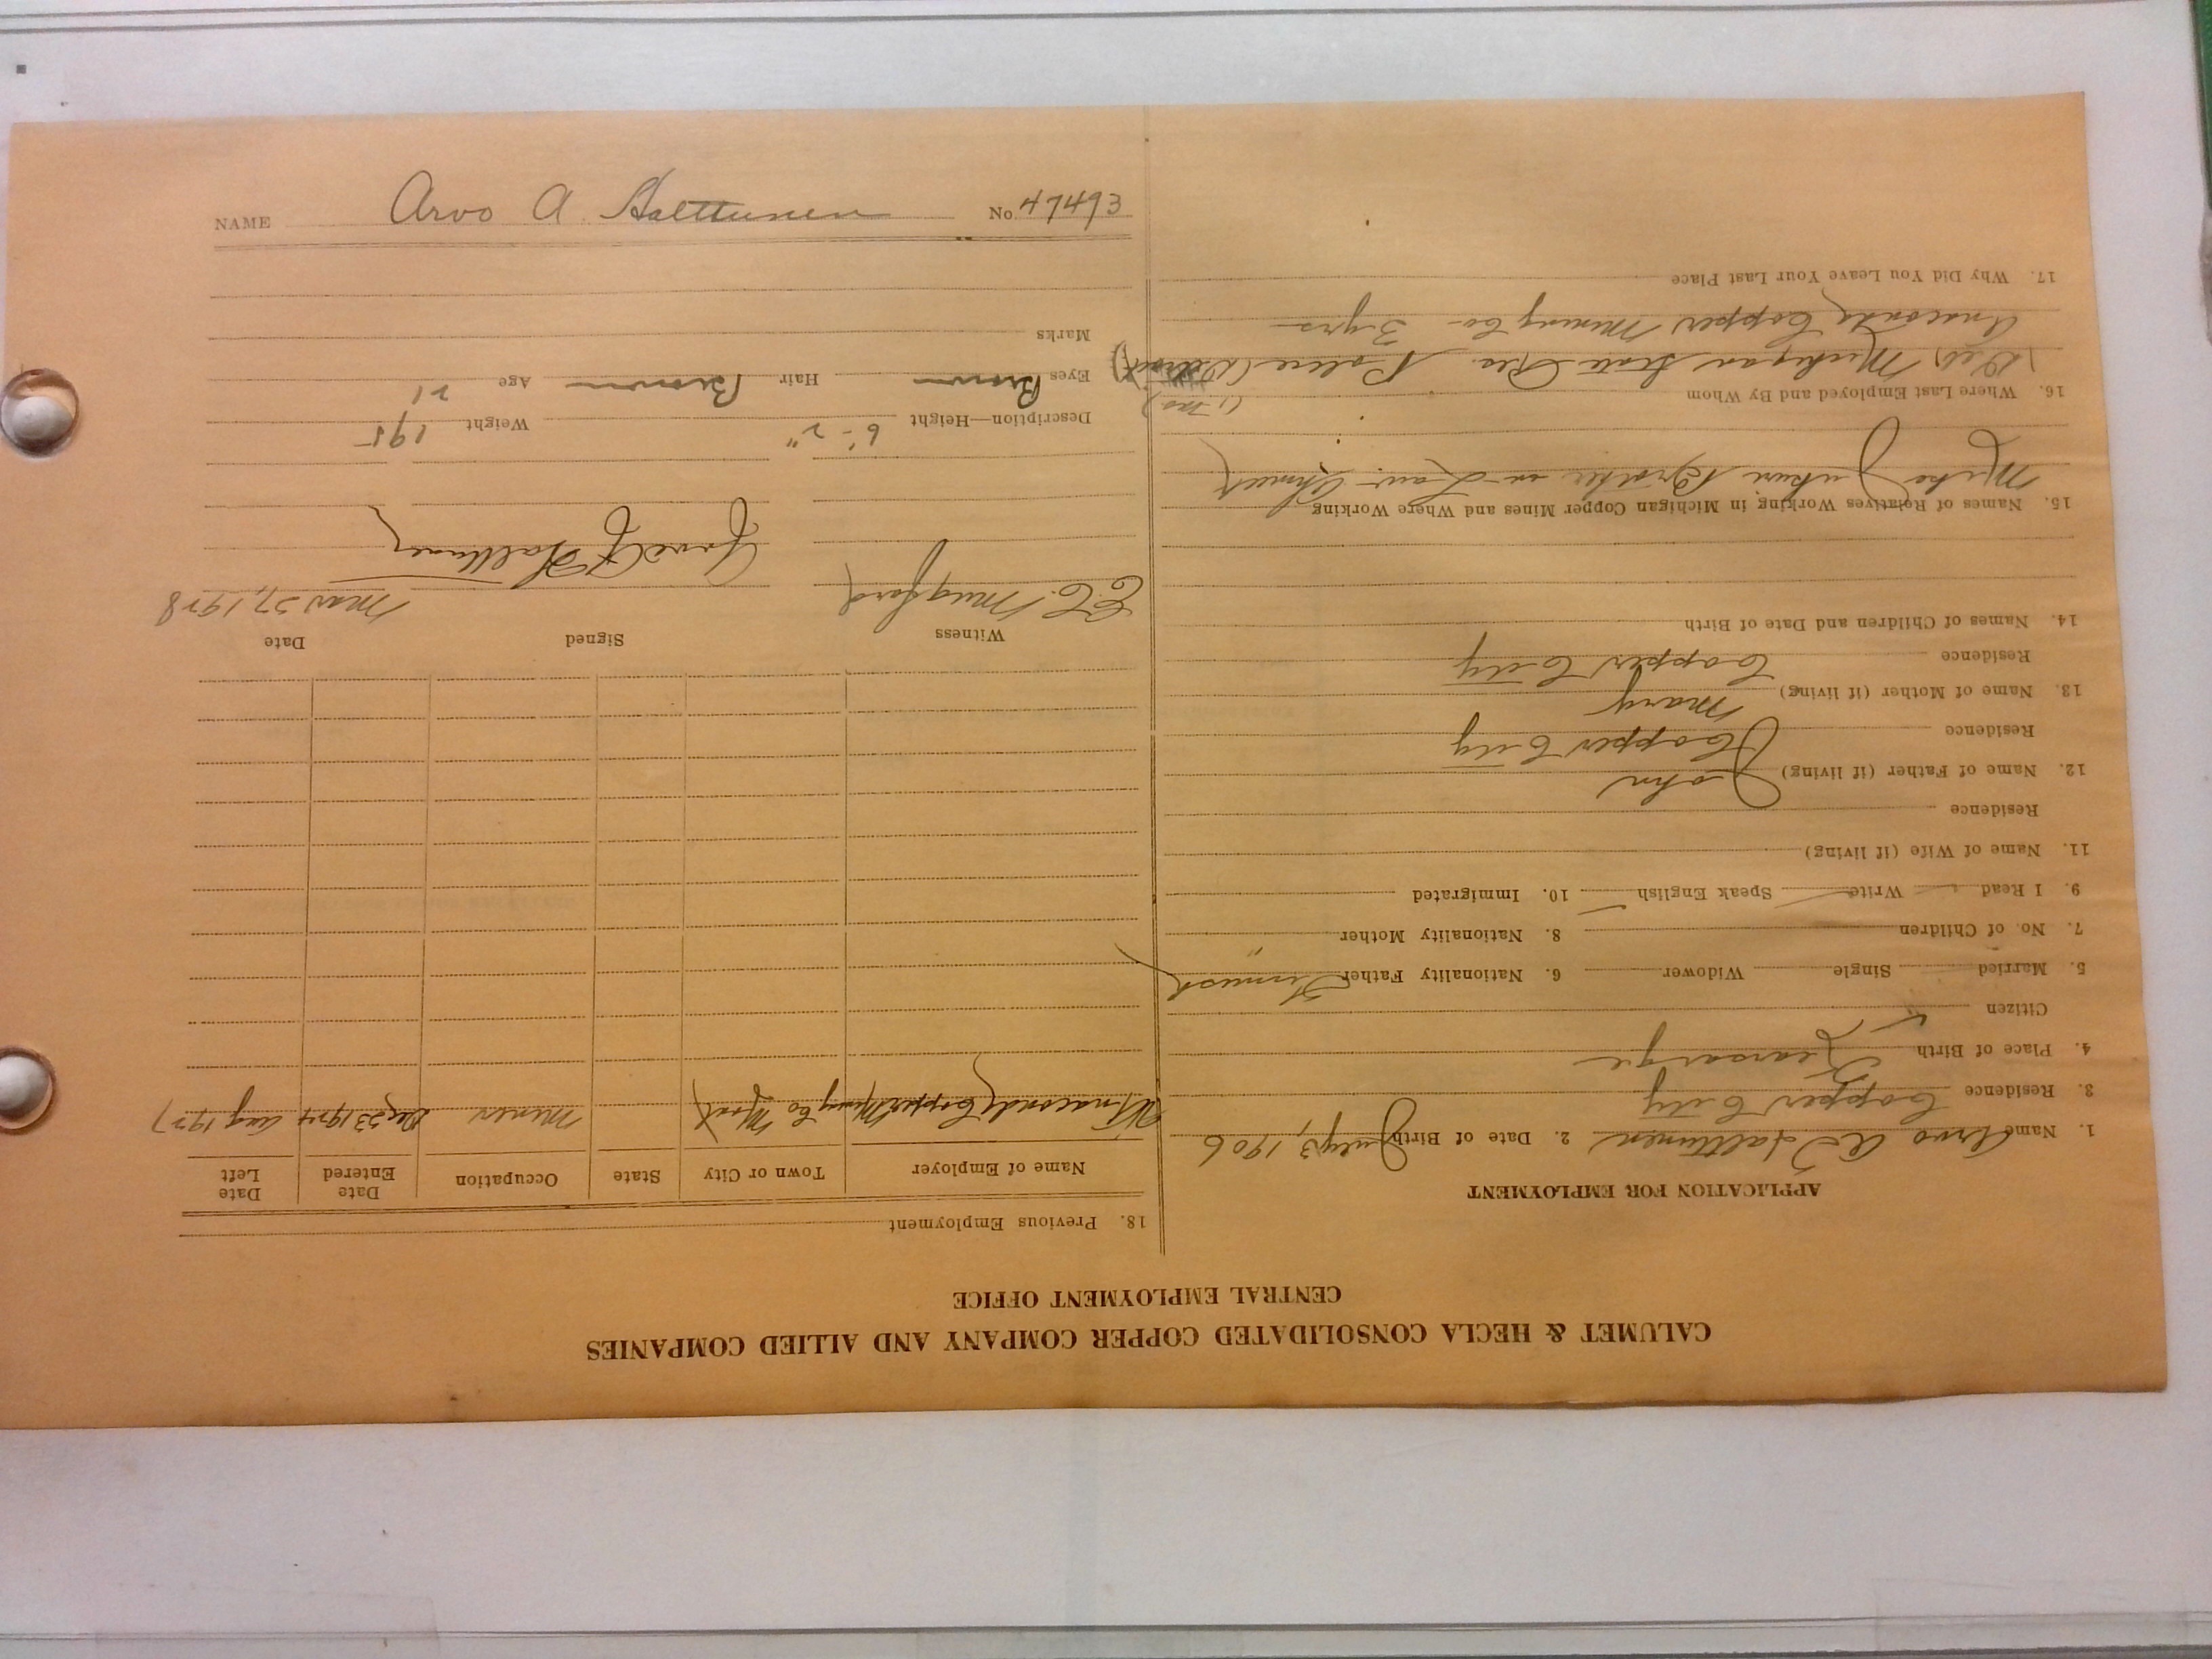 NAME Arvo A Halttunen No 47493
CALUMET & HECLA CONSOLIDATED COPPER COMPANY AND ALLIED COMPANIES
CENTRAL EMPLOYMENT OFFICE
APPLICATION FOR EMPLOYMENT
1. Name Arvo A Halttunen 2. Date of Birth July 3, 1906
3. Residence Copper City
4. Place of Birth Kearsarge
Citizen
5. Married Single Widower 6. Nationality Father Finnish
7. No. of Children 8. Nationality Mother "
9. I Read Write Speak English 10. Immigrated
11. Name of Wife (if living)
Residence
12. Name of Father (if living) John
Residence Copper City
13. Name of Mother (if living) Mary
Residence Copper City
14. Names of Children and Date of Birth
15. Names of Relatives Working in Michigan Copper Mines and Where Working
Brother in Law Ahmeek
16. Where Last Employed and By Whom
Michigan State Police (Detroit)
Anaconda Copper Mining Co 3 yrs
17. Why Did You Leave Your Last Place
18. Previous Employment
Name of Employer Town or City State Occupation Date Entered Date Left
Anaconda Copper Mining Co Mont Miner Dec 23 1924 Aug 1927
Witness Signed Date
Mugford Mar 27, 1928
Halttunen
Description—Height 6'-2" Weight 195
Eyes Brown Hair Brown Age 21
Marks